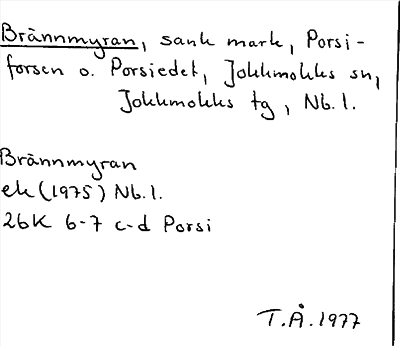 Brännmyran, sank mark, Porsi-
forsen o. Porsiedet, Jokkmokks sn,
Jokkmokks tg, Nb.l.
Brännmyran
ek (1975) Nb.l.
26K 6-7 c-d Porsi
T.Å. 1977